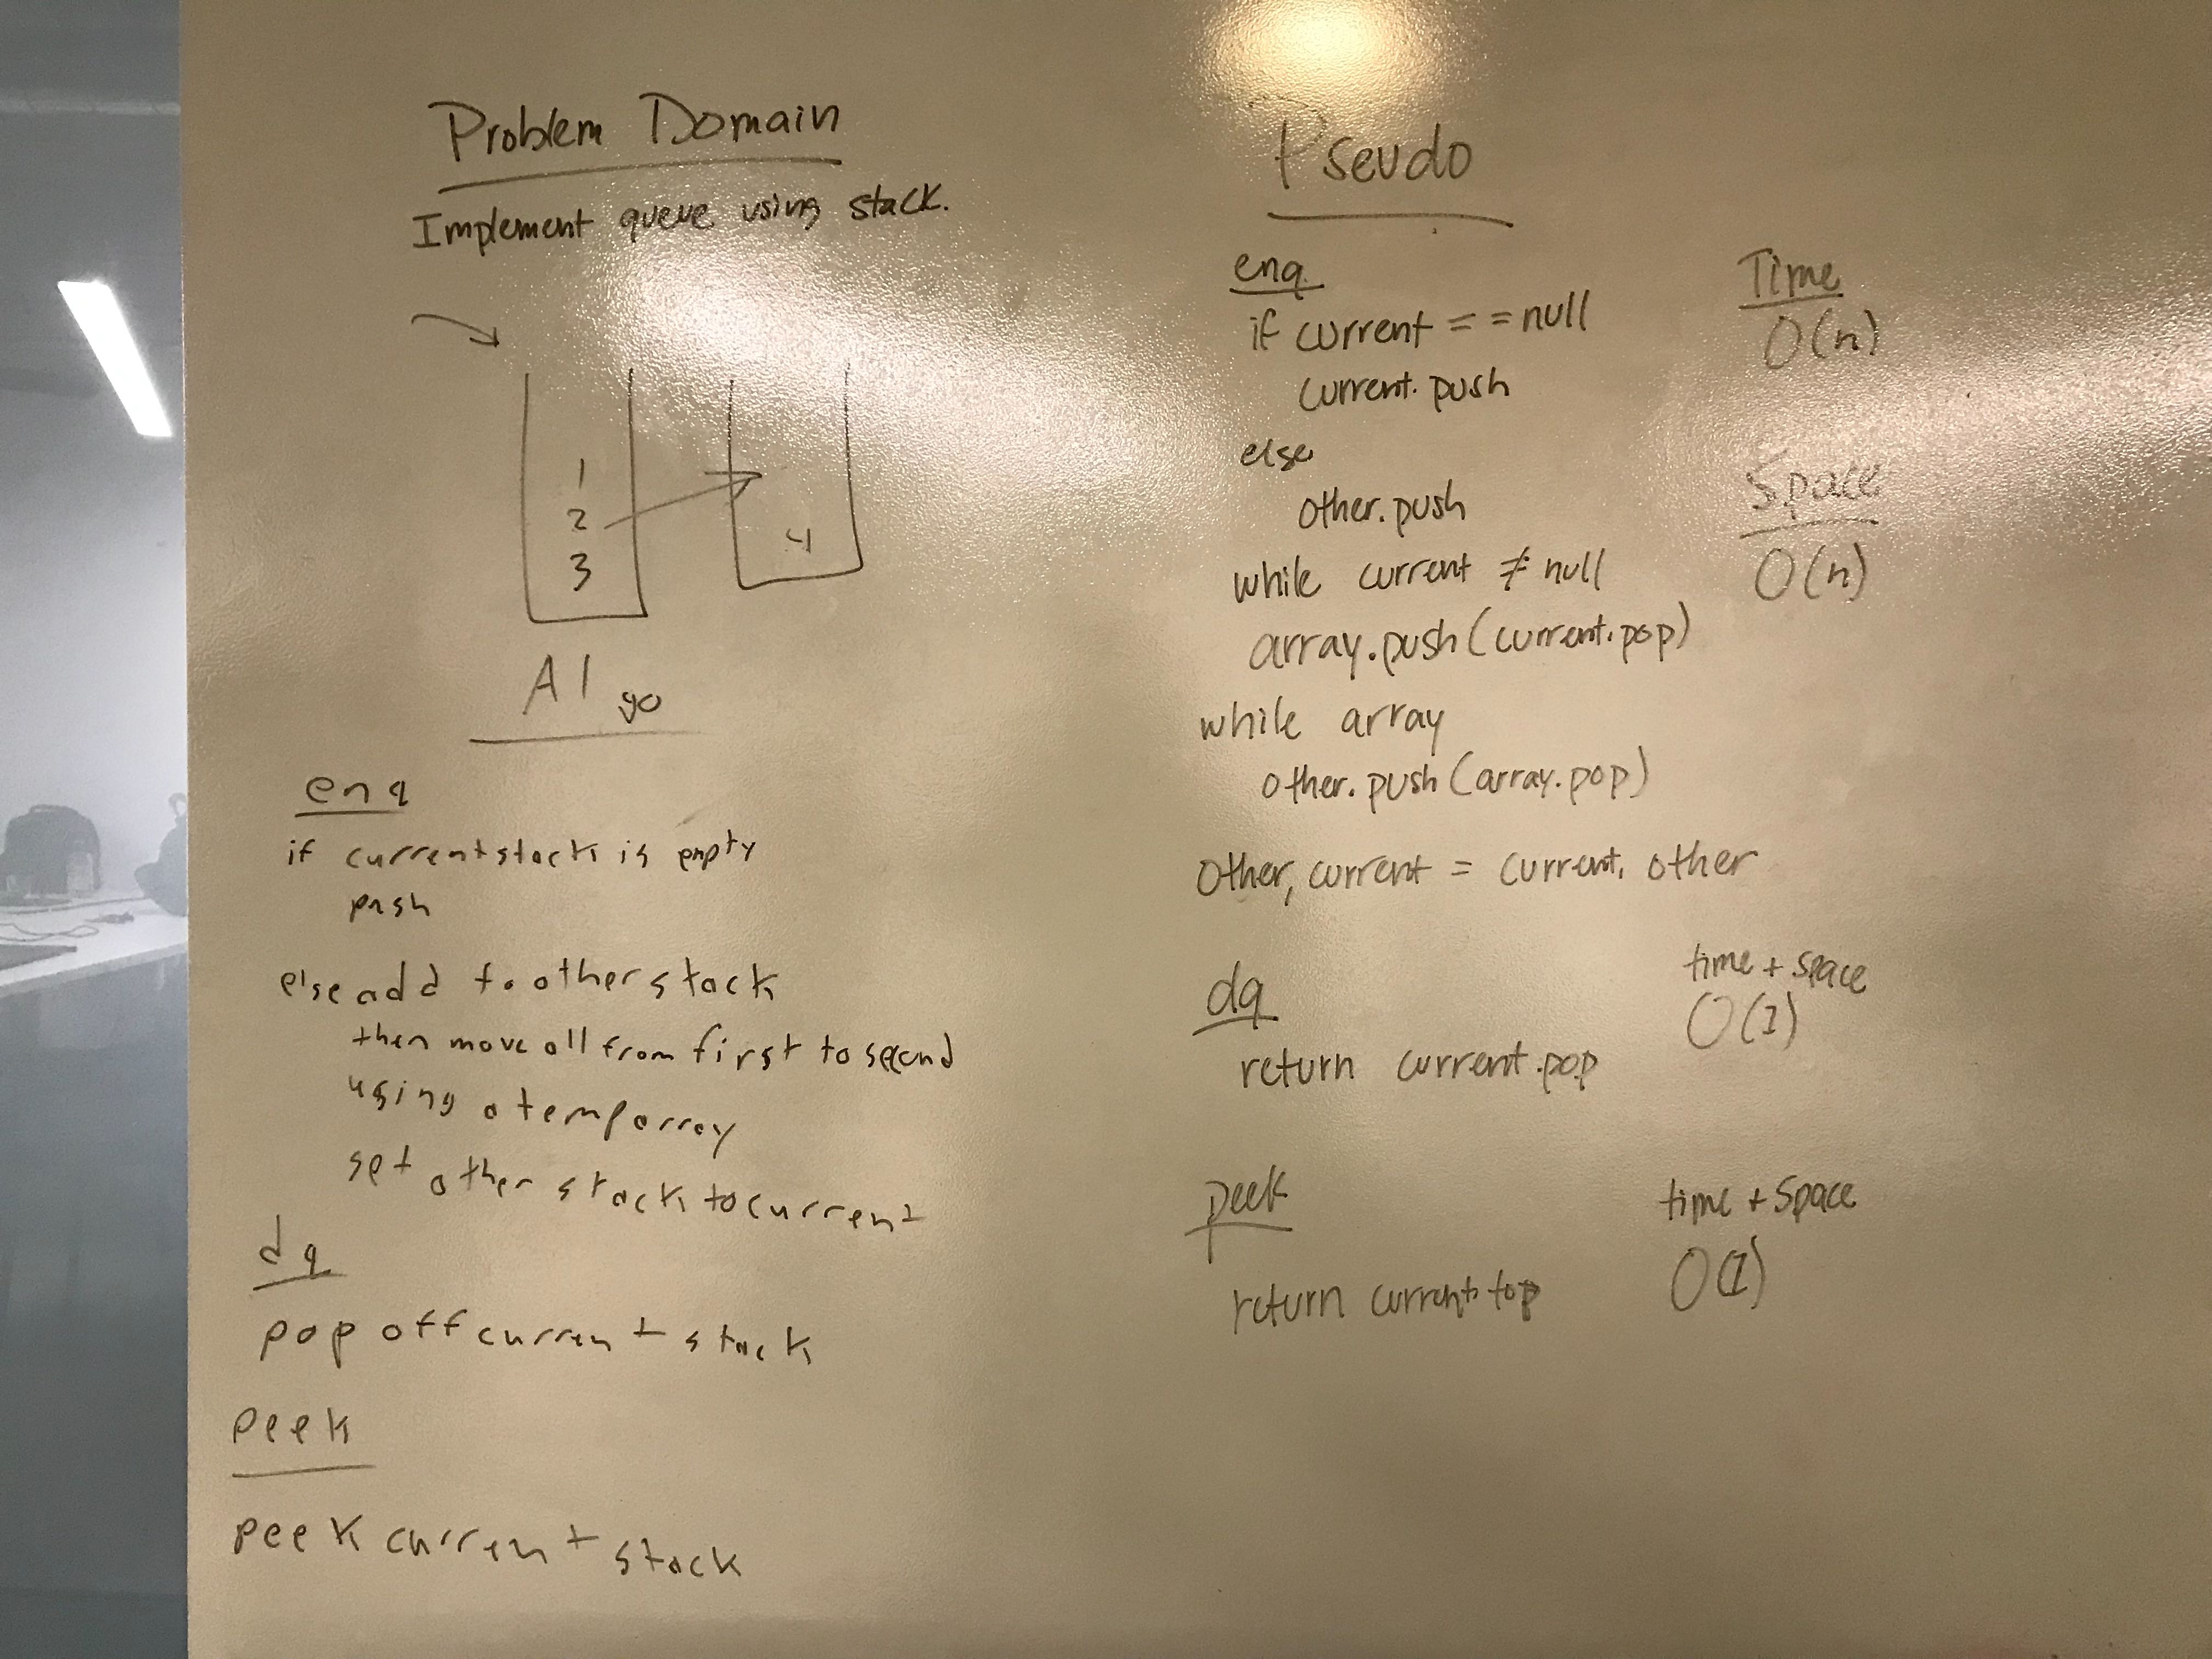 Problem Domain
Implement queue using stack.
1
2
3
4
Algo
enq
if current stack is empty
push
else add to other stack
then move all from first to second
using a temp array
set other stack to current
dq
pop off current stack
peek
peek current stack
Pseudo
enq
if current == null
current.push
else
other.push
while current ≠ null
array.push(current.pop)
while array
other.push(array.pop)
other, current = current, other
dq
return current.pop
peek
return current.top
Time
O(n)
Space
O(n)
time + space
O(1)
time + space
O(1)